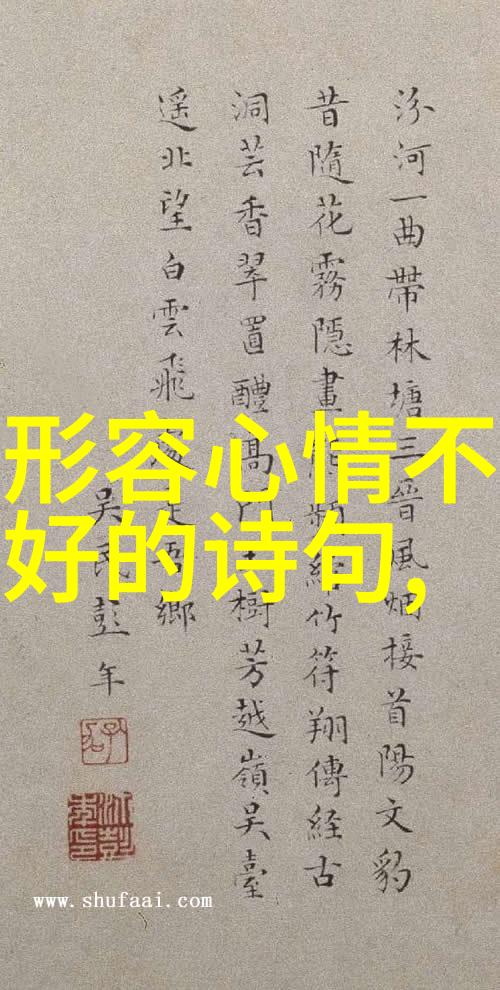 形容心情不
好的诗句,
汾河一曲帶林塘三晉風烟接首陽文豹
昔隨花霧隱畫竹符翔傳經古
洞芸香翠置醴高門樹芳越嶺吳臺
遥北望白雲飛鄉
吳民彭年
www.shufaai.com